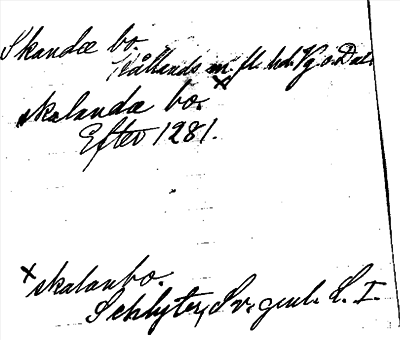 Skandæ bo.
Kållands m. fl. hd. Vg. o. Dal.
x
skalandæ bo.
Efter 1281.
x skalanbo.
Schlyter, Sv. gml. L. I.